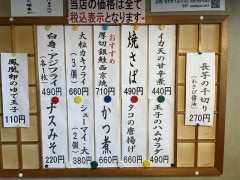 当店の価格は全て
税込表示となります。
長芋の千切り
(わさび醤油)
270円
イカ天の甘辛煮
440円
玉子のハムサラダ
490円
焼さば
490円
タコの唐揚げ
660円
おすすめ
厚切銀鮭西京焼
710円
かつ煮
660円
大粒カキフライ
(3個)
660円
シューマイ
(2個)
380円
白身・アジフライ
(各1枚)
490円
ナスみそ
220円
鳳凰卵のゆで玉子
110円